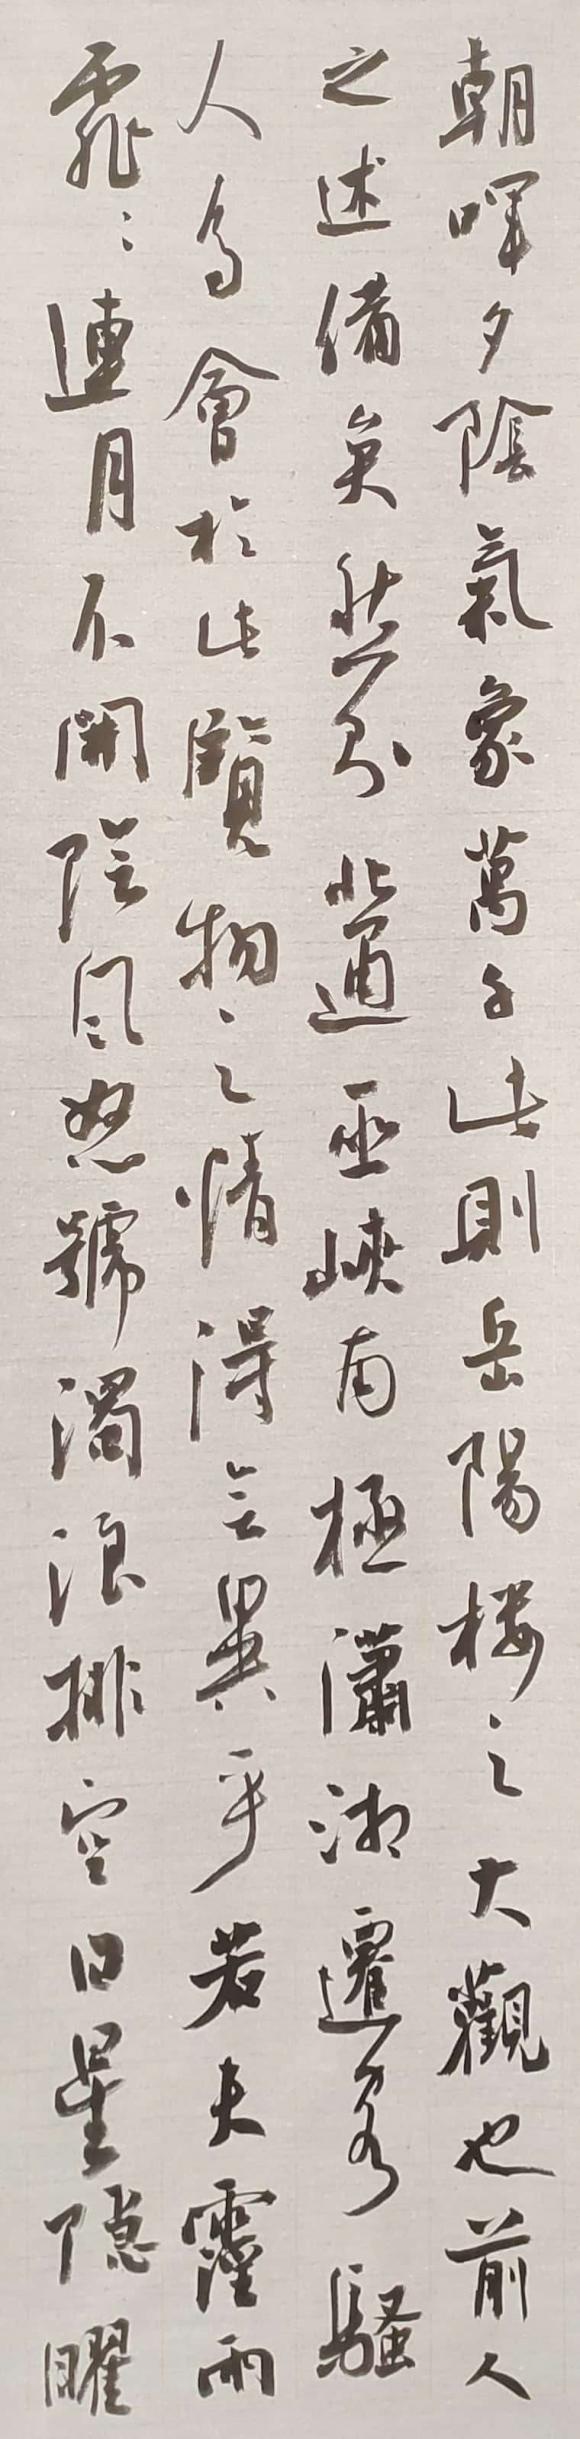 朝暉夕陰氣象萬千此則岳陽樓之大觀也前人
之述備矣然則北通巫峽南極瀟湘遷客騷
人多會於此覽物之情得無異乎若夫霪雨
霏霏連月不開陰風怒號濁浪排空日星隱曜